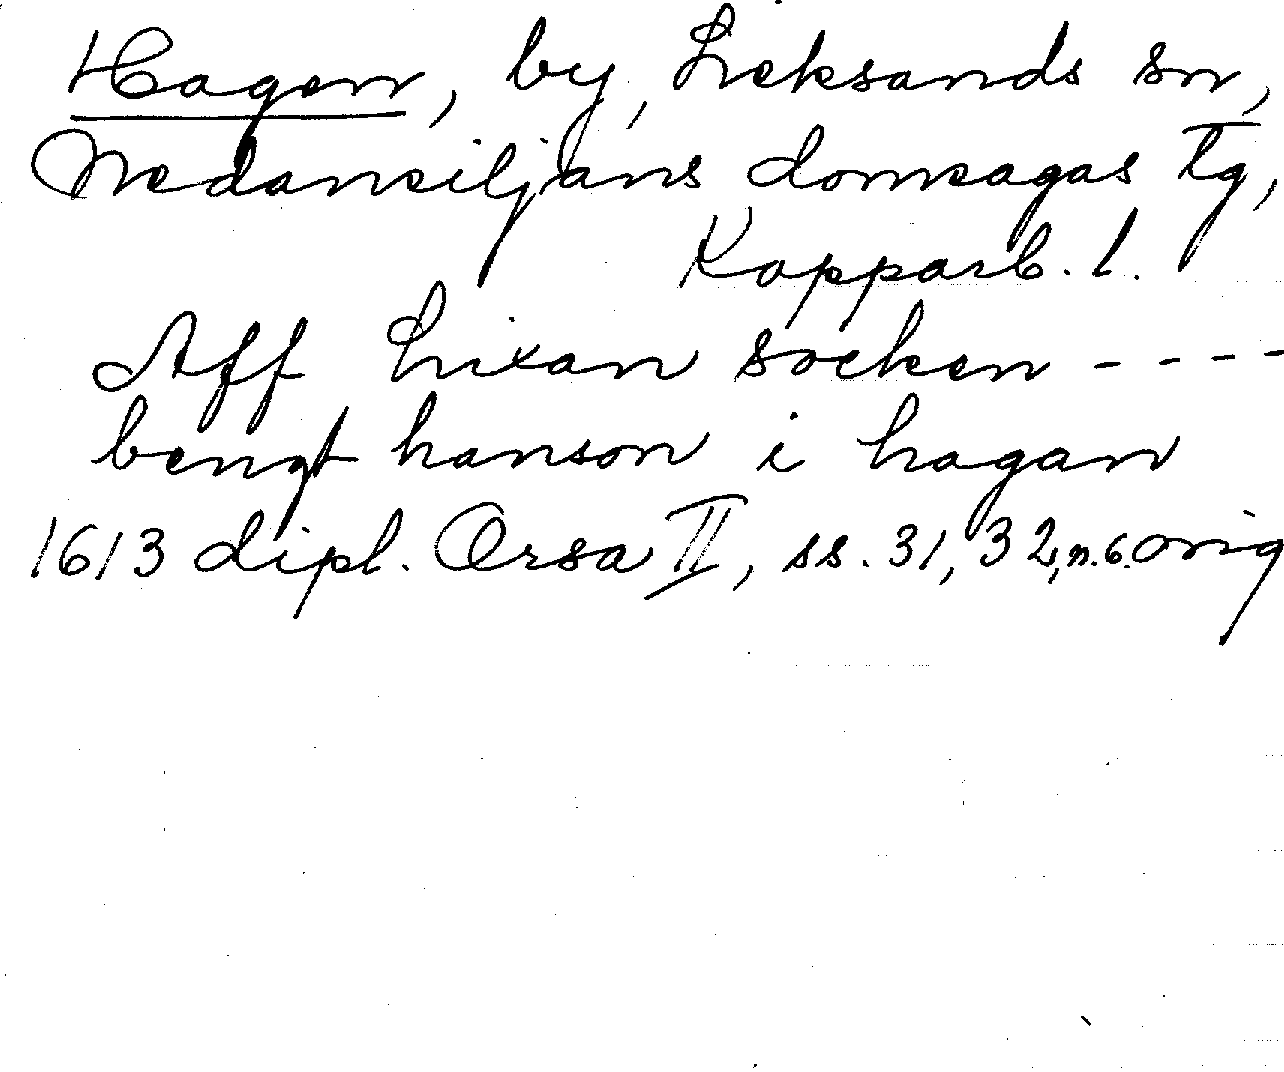 Hagen, by, Leksands sn,
Nedansiljans domsagas tg,
Kopparb. l.
Aff Lixan socken ----
bengt hanson i hagan
1613 dipl. Orsa II, ss. 31, 32, n. 6. orig